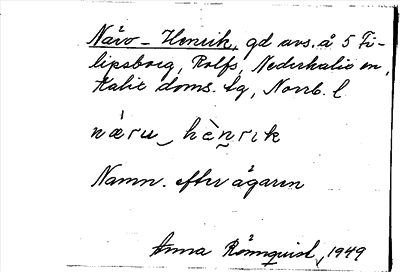 Nåvo-Henrik, gd avs. å 5 Fi-
lipsborg, Rolfs, Nederkalix sn,
Kalix doms. tg, Norrb. l
næru hènrik
Namn. efter ägaren
Anna Rönnquist, 1949